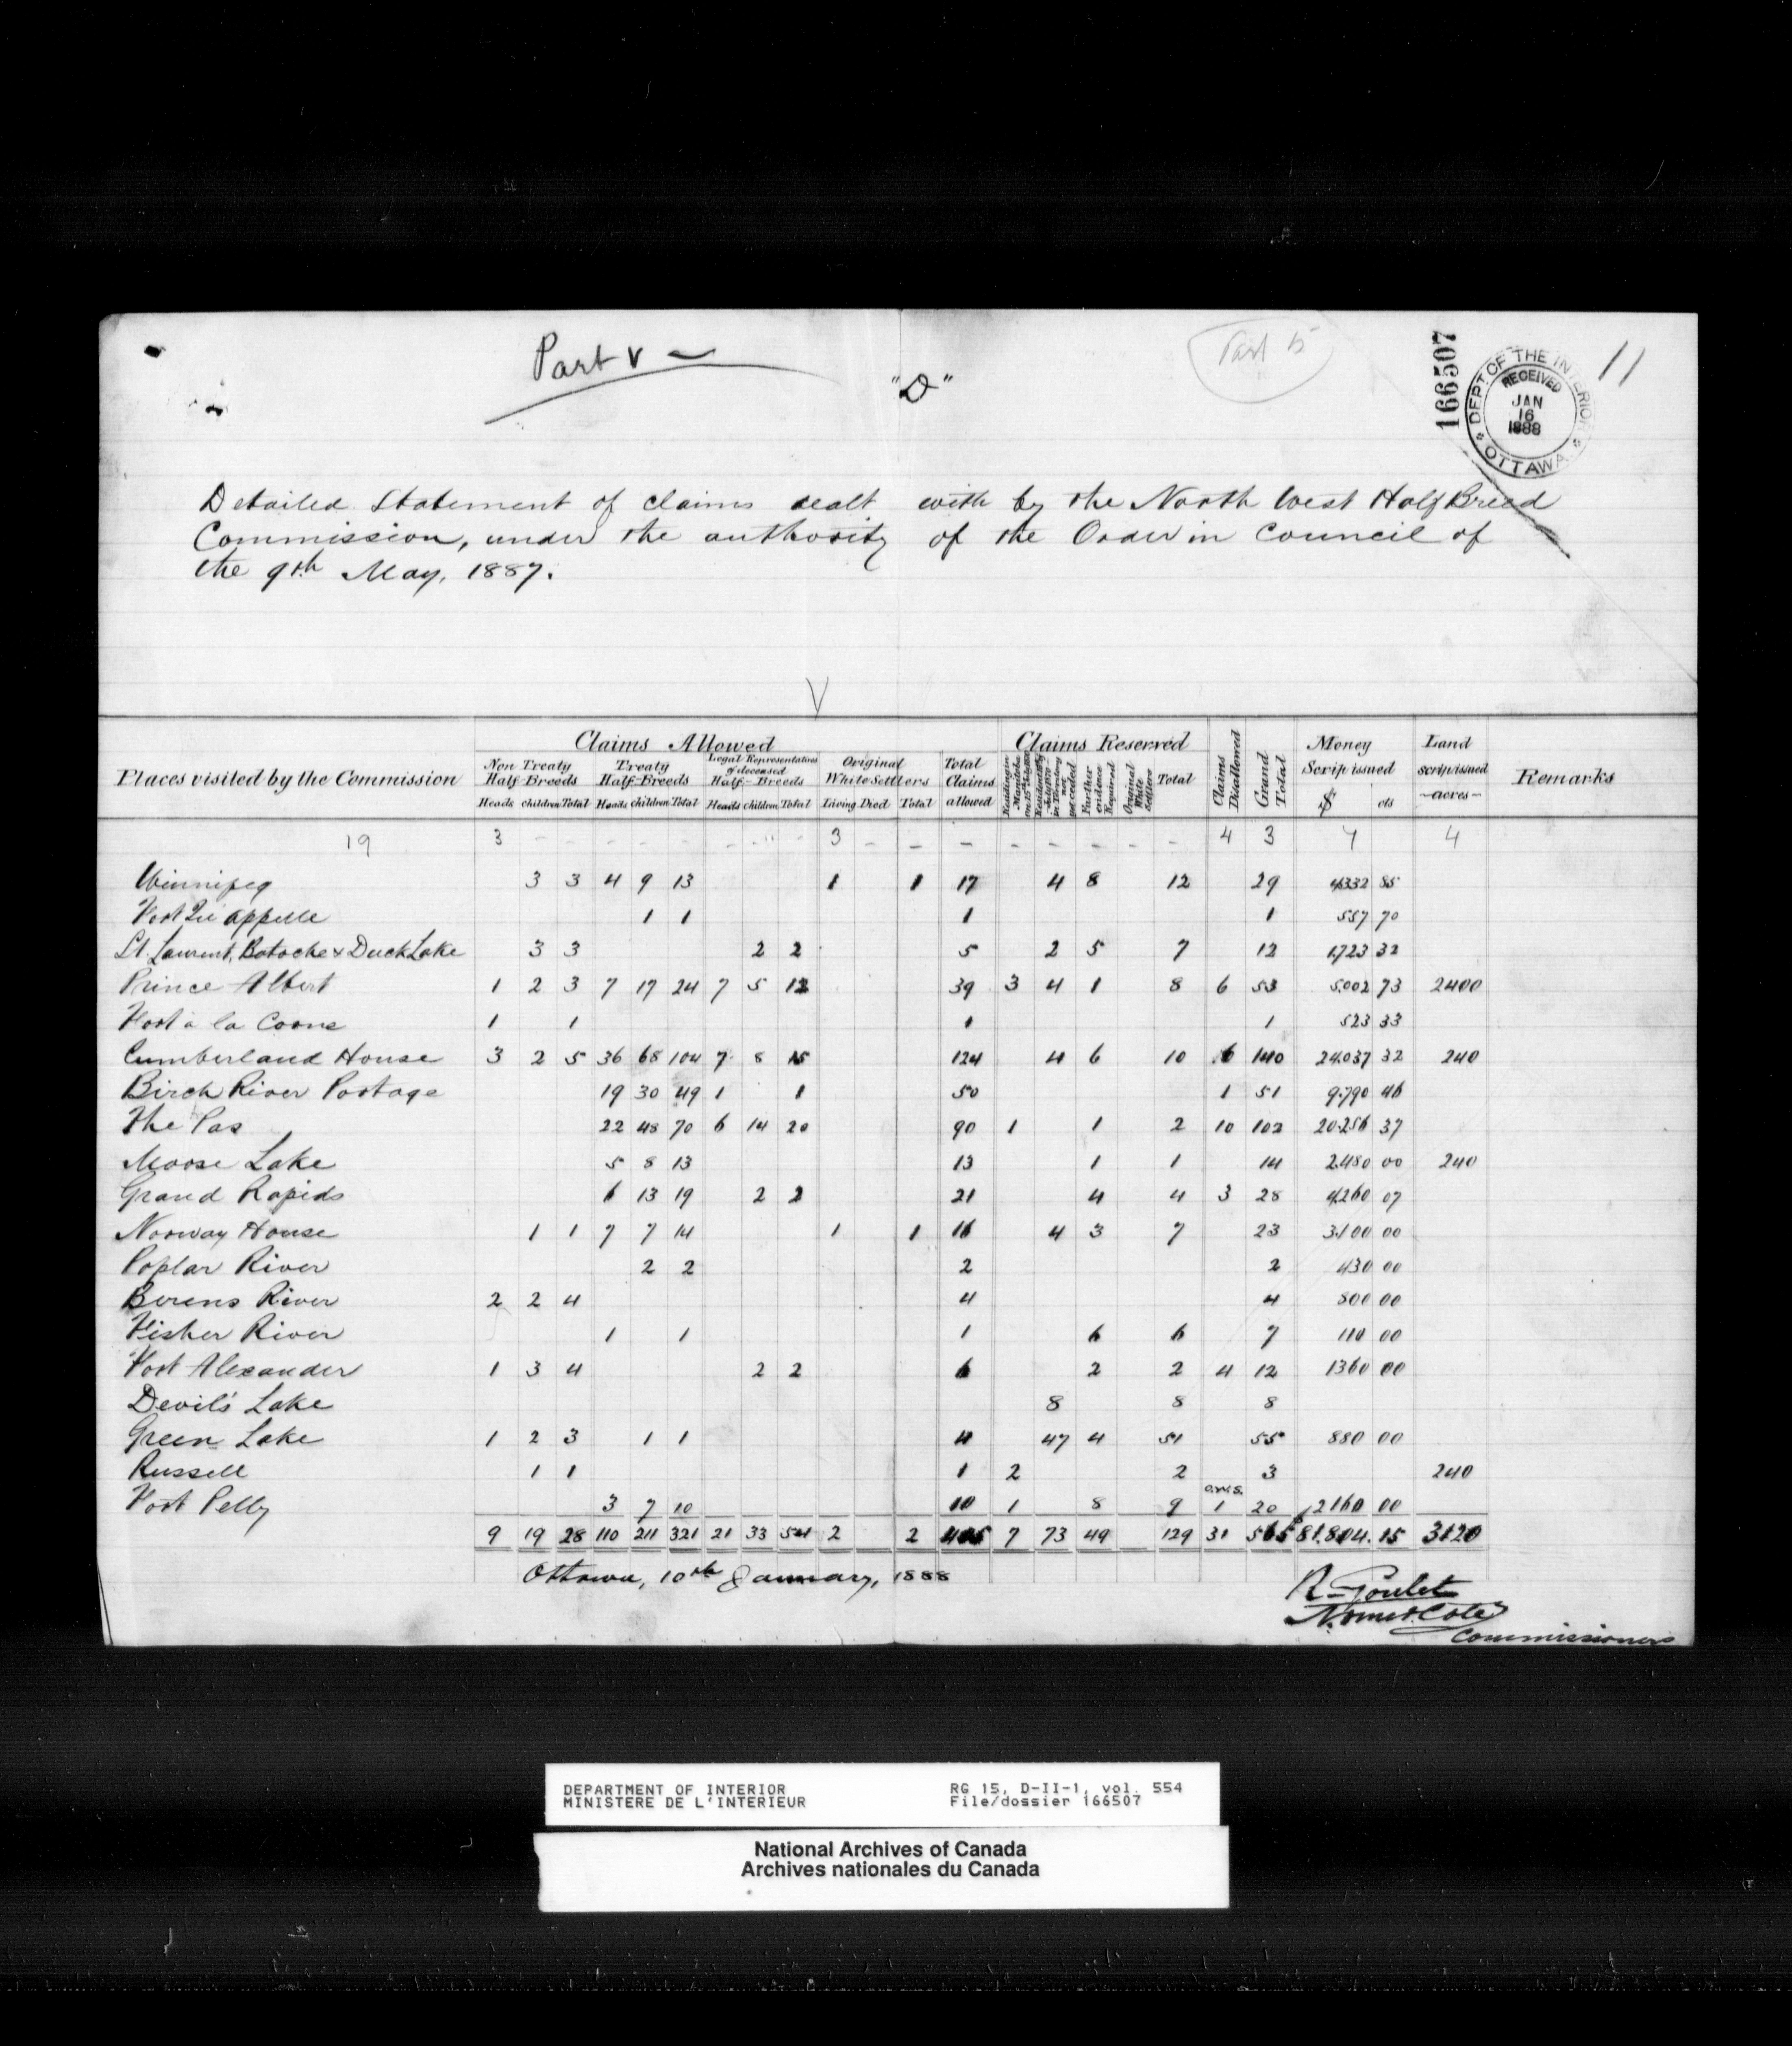 Part V
"D"
Part 5
166507
11
DEPT. OF THE INTERIOR
RECEIVED
JAN
16
1888
OTTAWA
Detailed Statement of claims dealt with by the North West Half Breed
Commission, under the authority of the Order in Council of
the 9th May, 1887.
V
Places visited by the Commission
Claims Allowed
Non Treaty Half-Breeds
Heads Children Total
Treaty Half-Breeds
Heads Children Total
Legal Representatives of deceased Half-Breeds
Heads Children Total
Original White Settlers
Living Died Total
Total Claims allowed
Claims Reserved
Residing in Manitoba on 15th July 1870
Further evidence Required
Original White Settlers
Total
Claims Disallowed
Grand Total
Money Scrip issued
$ cts
Land scrip issued
-acres-
Remarks
19 3 - - - - - - - " - 3 - - - - - - - - 4 3 4
Winnipeg 3 3 4 9 13 1 1 17 4 8 12 29 4,332 85
Fort Qu'appelle 1 1 1 1 557 70
St. Laurent, Batoche & Duck Lake 3 3 2 2 5 2 5 7 12 1,723 32
Prince Albert 1 2 3 7 17 24 7 5 12 39 3 4 1 8 6 53 5,002 73 2400
Fort à la Corne 1 1 1 1 523 33
Cumberland House 3 2 5 36 68 104 7 8 15 124 4 6 10 6 140 24,037 32 240
Birch River Portage 19 30 49 1 1 50 1 51 9,790 46
The Pas 22 48 70 6 14 20 90 1 1 2 10 102 20,256 37
Moose Lake 5 8 13 13 1 1 14 2,480 00 240
Grand Rapids 6 13 19 2 2 21 4 4 3 28 4,260 07
Norway House 1 1 7 7 14 1 1 16 4 3 7 23 3,100 00
Poplar River 2 2 2 2 430 00
Berens River 2 2 4 4 4 800 00
Fisher River 1 1 1 6 6 7 110 00
Fort Alexander 1 3 4 2 2 6 2 2 4 12 1360 00
Devil's Lake 8 8 8
Green Lake 1 2 3 1 1 4 47 4 51 55 880 00
Russell 1 1 1 2 2 3 240
Fort Pelly 3 7 10 10 1 8 9 1 20 2160 00
9 19 28 110 211 321 21 33 54 2 2 405 7 73 49 129 31 565 $81.804.15 3120
Ottawa, 10th January, 1888
R. Goulet
N. Omer Coté
Commissioners
DEPARTMENT OF INTERIOR
MINISTERE DE L'INTERIEUR
RG 15, D-II-1, vol. 554
File/dossier 166507
National Archives of Canada
Archives nationales du Canada